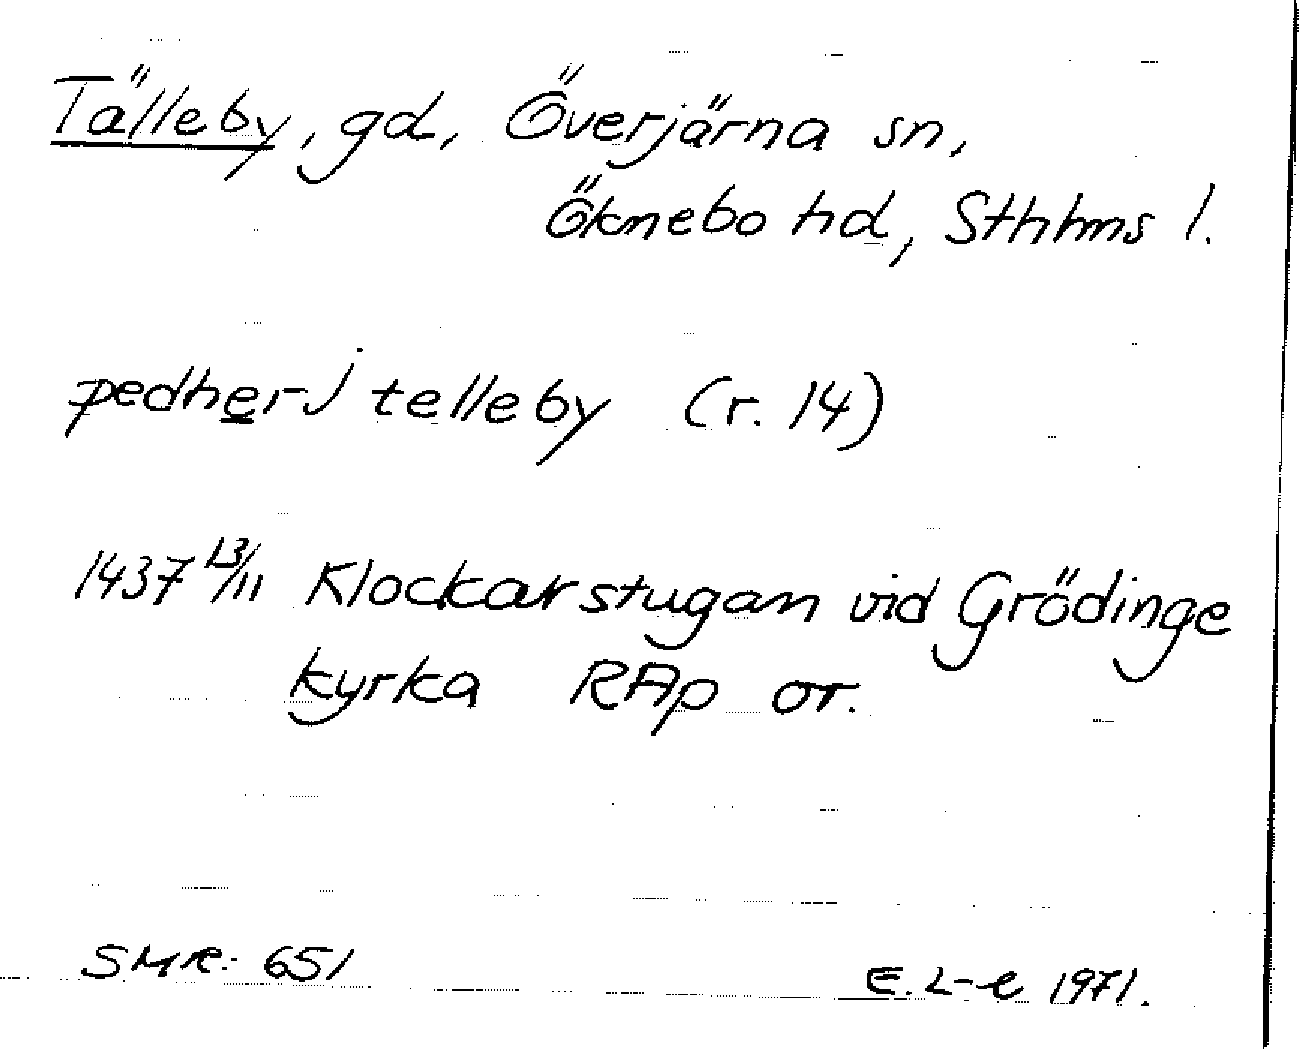 Tälleby, gd, Överjärna sn,
Öknebo hd, Sthlms l.
pedher j telleby (r. 14)
1437 13/11 Klockarstugan vid Grödinge
kyrka RAp or.
SMR: 651
E. L-e 1971.